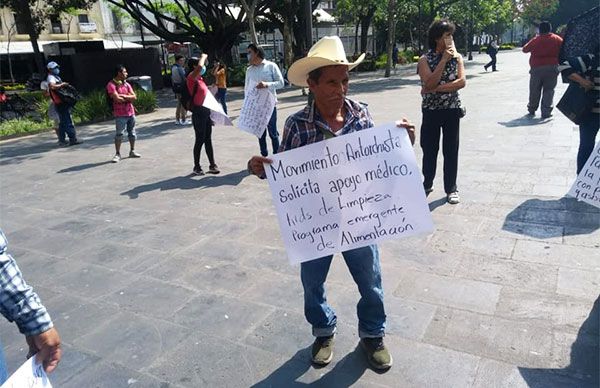 Movimiento Antorchista
Solicita apoyo médico.
kids de Limpieza
Programa emergente
de Alimentación